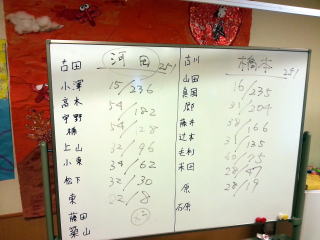 吉田 河田 251
小澤 15/236
高木 54/182
宇野
橋 54/128
上山 32/96
小東 34/62
松下 32/30
東 22/8
藤田
築山
吉川 橋本 251
山田 16/235
真国
郷 31/204
藤井 38/166
辻本 31/135
毛利 60/75
米田 28/47
原 28/19
石原